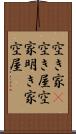 空き家
空き屋空
家明き家
空屋